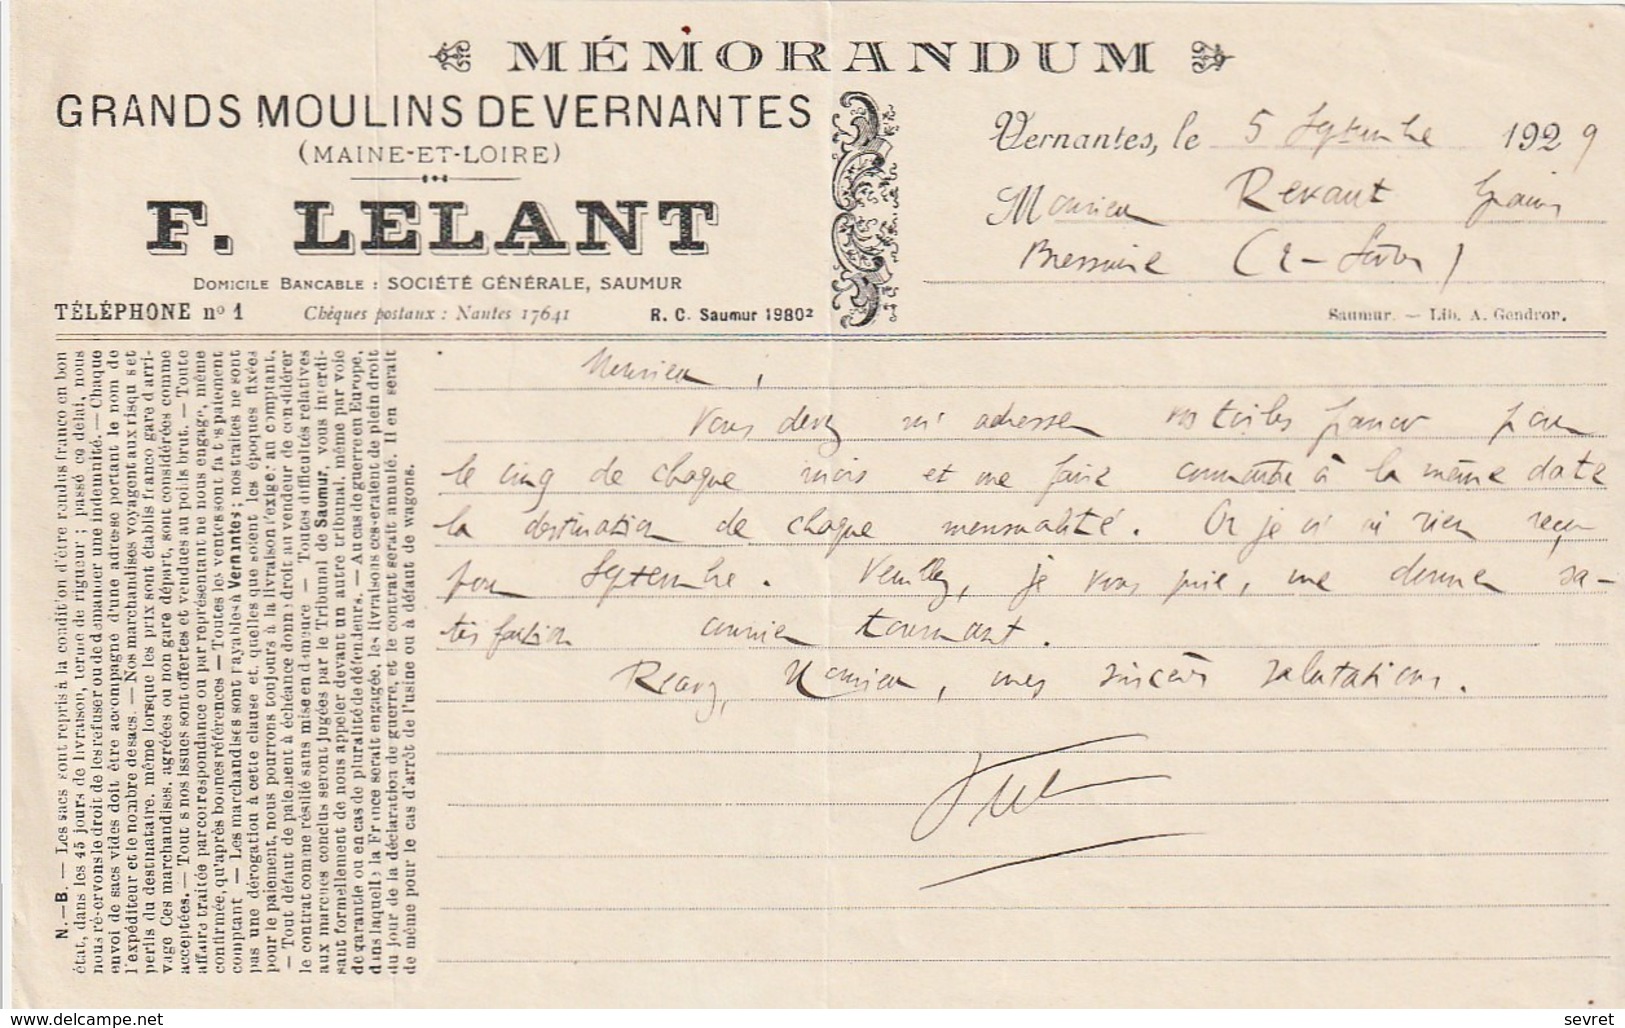 MÉMORANDUM
GRANDS MOULINS DE VERNANTES
(MAINE-ET-LOIRE)
F. LELANT
DOMICILE BANCABLE : SOCIÉTÉ GÉNÉRALE, SAUMUR
TÉLÉPHONE nº 1 Chèques postaux : Nantes 17641 R. C. Saumur 1980²
Vernantes, le 5 Septembre 1929
Monsieur Revaut Grains
Bressuire (2-Sèvres)
Saumur. — Lib. A. Gendron.
N.-B. — Les sacs sont repris à la condition d'être rendus franco en bon
état, dans les 45 jours de livraison, terme de rigueur ; passé ce délai, nous
nous réservons le droit de les refuser ou de demander une indemnité. — Chaque
envoi de sacs vides doit être accompagné d'une adresse portant le nom de
l'expéditeur et le nombre de sacs. — Nos marchandises voyagent aux risqu s et
perils du destinataire, même lorsque les prix sont établis franco gare d'arri-
vage Ces marchandises, agréées ou non gare départ, sont considérées comme
acceptées. — Tout s nos issues sont offertes et vendues au poids brut. — Toute
affaire traitée par correspondance ou par représentant ne nous engage, même
confirmée, qu'après bonnes références — Toutes les ventes sont fait s paiement
comptant — Les marchandises sont payables à Vernantes ; nos traites ne sont
pas une dérogation à cette clause et, quelles que soient les époques fixées
pour le paiement, nous pourrons toujours à la livraison l'exiger au comptant.
— Tout défaut de paiement à échéance donne droit au vendeur de considérer
le contrat comme résilié sans mise en demeure — Toutes difficultés relatives
aux marchés conclus seront jugées par le Tribunal de Saumur, vous interdi-
sant formellement de nous appeler devant un autre tribunal, même par voie
de garantie ou en cas de pluralité de défendeurs. — Au cas de guerre en Europe,
dans laquelle la France serait engagée, les livraisons cesseraient de plein droit
du jour de la déclaration de guerre, et le contrat serait annulé. Il en serait
de même pour le cas d'arrêt de l'usine ou à défaut de wagons.
Monsieur,
Vous devez m'adresser vos toiles franco pour
le cinq de chaque mois et me faire connaître à la même date
la destination de chaque mensualité. Or je n'ai rien reçu
pour Septembre. Veuillez, je vous prie, me donner sa-
tisfaction courrier tournant.
Recevez, Monsieur, mes sincères salutations.
delcampe.net
sevret